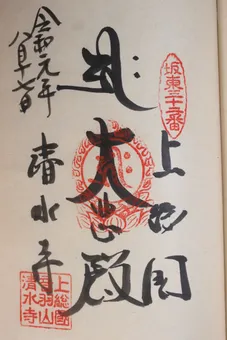 坂東三十二番
上総国
大悲殿
令和元年
清水寺
上総國
音羽山
清水寺